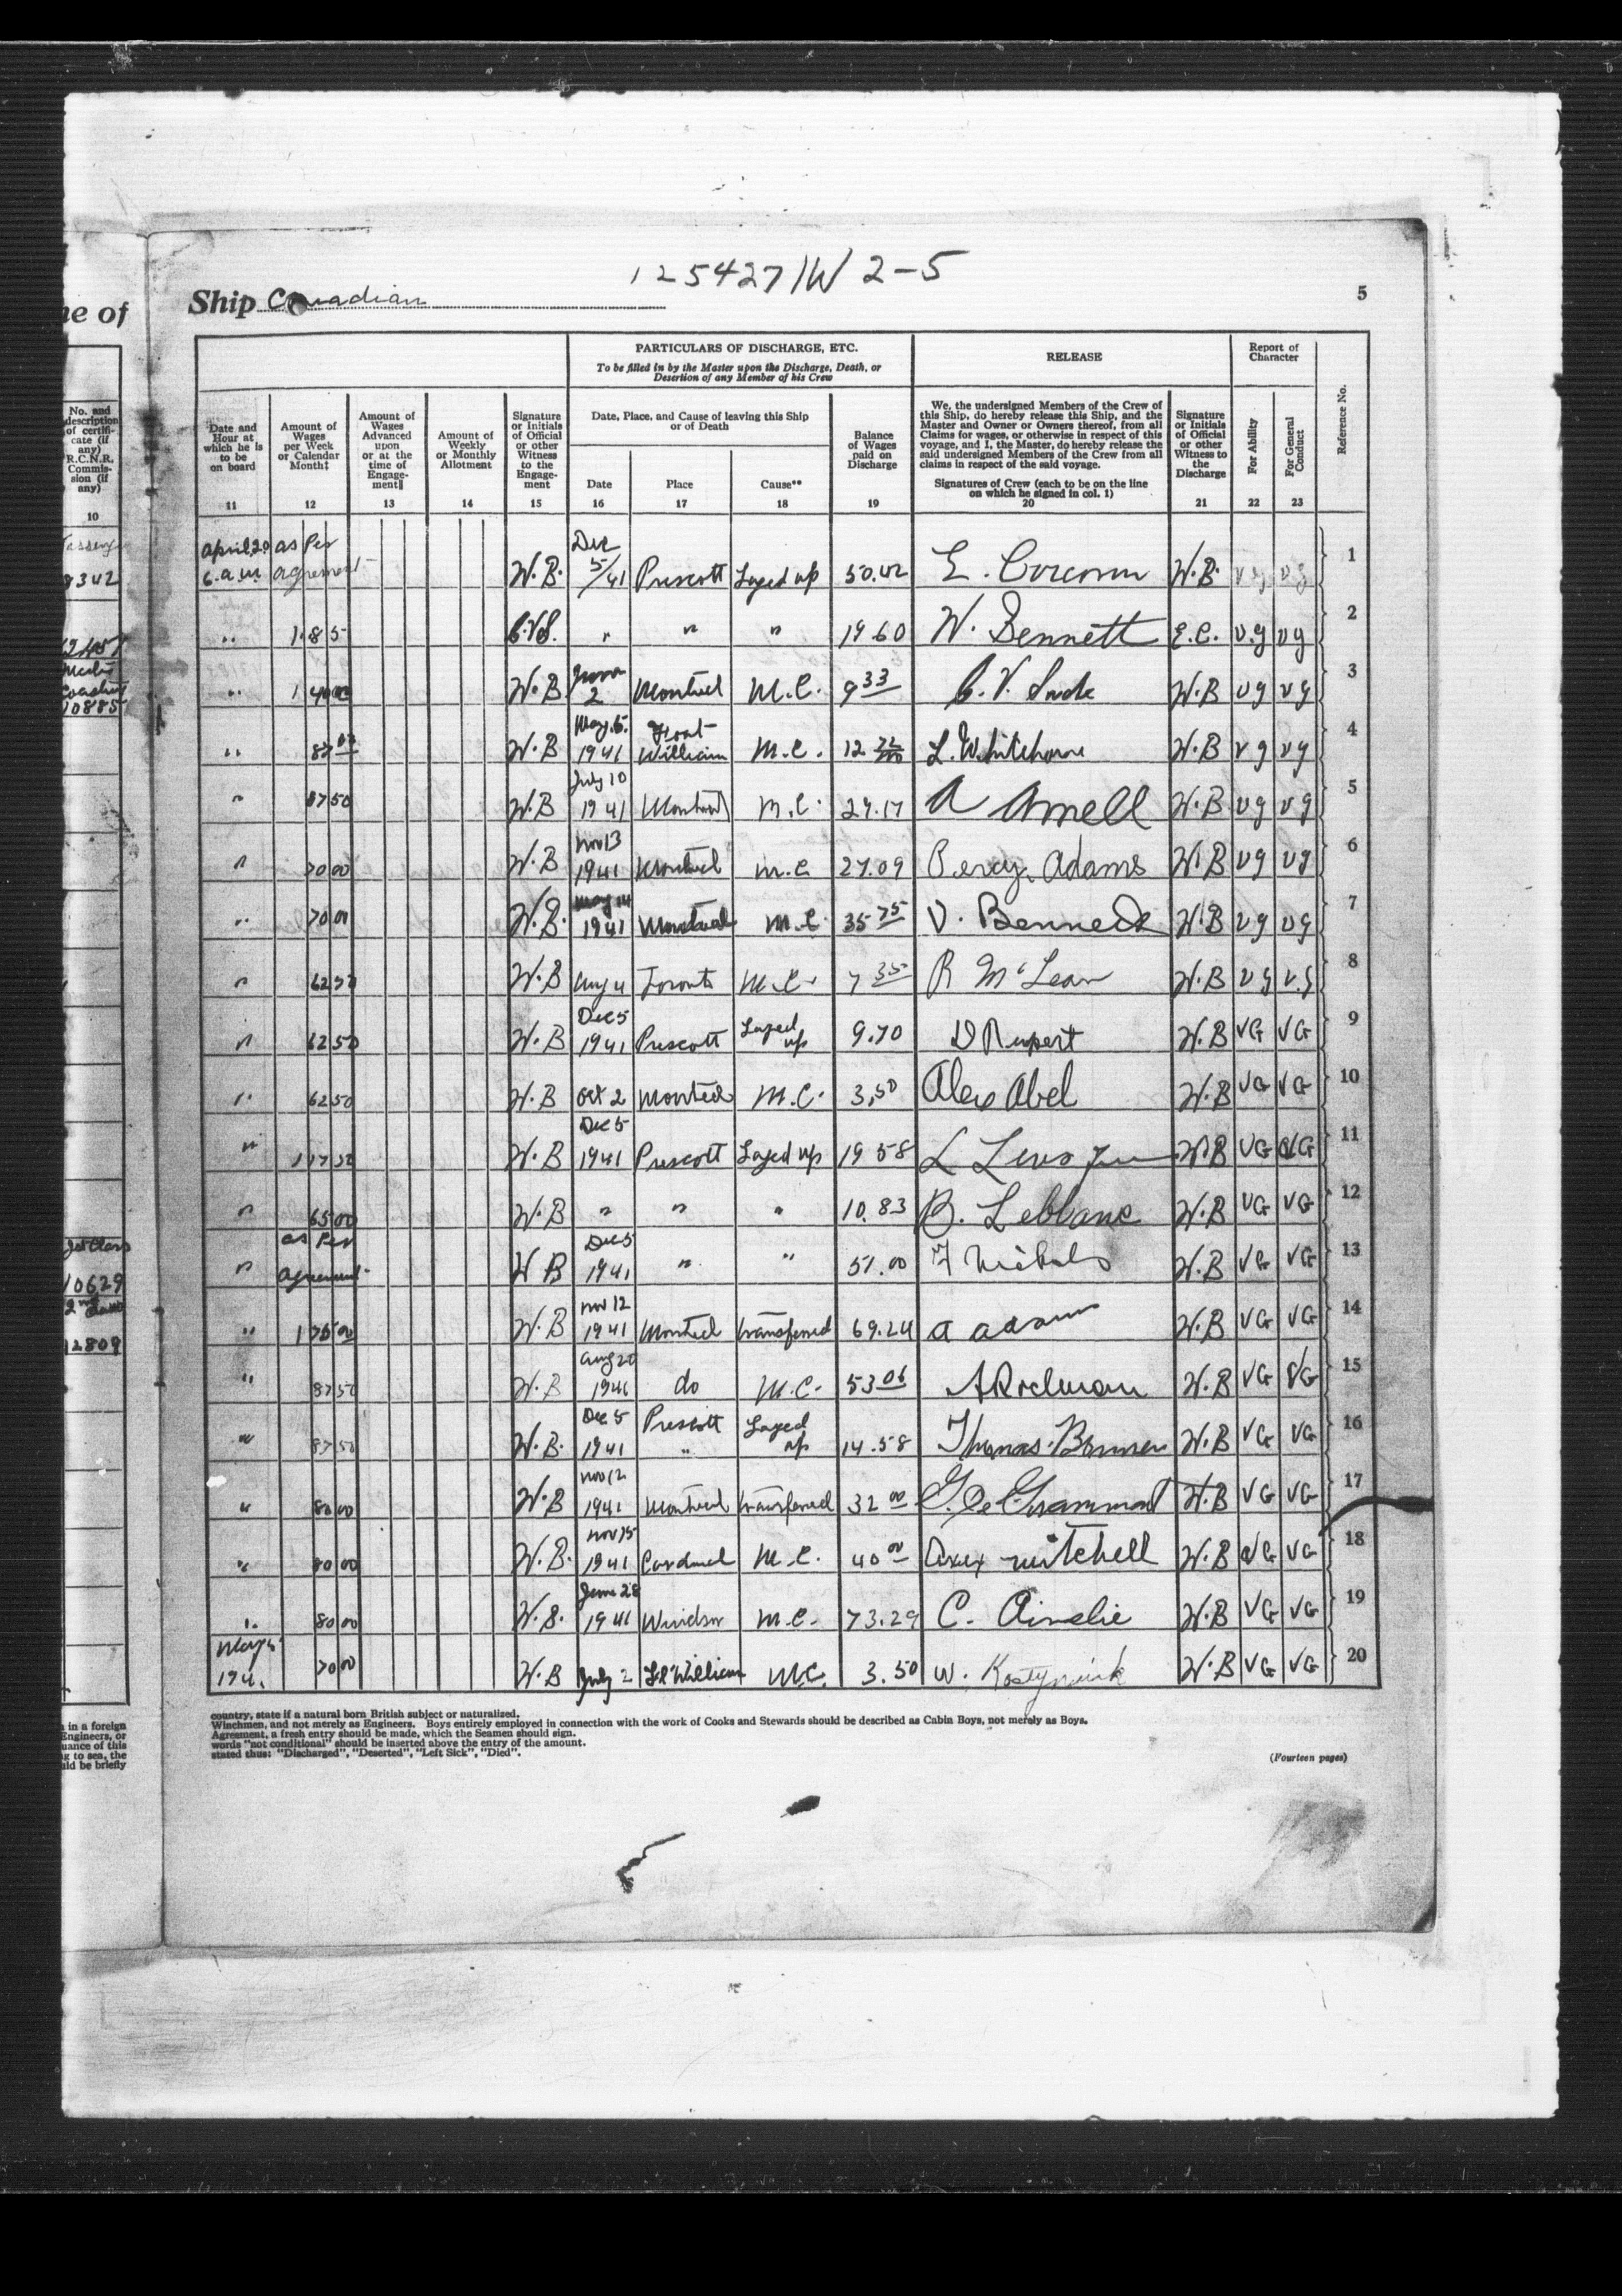 125427/W 2-5
Ship Canadian
5
ne of
PARTICULARS OF DISCHARGE, ETC.
To be filled in by the Master upon the Discharge, Death, or
Desertion of any Member of his Crew
RELEASE
Report of
Character
Reference No.
No. and
description
of certifi-
cate (if
any)
R.C.N.R.
Commis-
sion (if
any)
10
Date and
Hour at
which he is
to be
on board
11
Amount of
Wages
per Week
or Calendar
Month‡
12
Amount of
Wages
Advanced
upon
or at the
time of
Engage-
ment‖
13
Amount of
Weekly
or Monthly
Allotment
14
Signature
or Initials
of Official
or other
Witness
to the
Engage-
ment
15
Date, Place, and Cause of leaving this Ship
or of Death
Date
16
Place
17
Cause**
18
Balance
of Wages
paid on
Discharge
19
We, the undersigned Members of the Crew of
this Ship, do hereby release this Ship, and the
Master and Owner or Owners thereof, from all
Claims for wages, or otherwise in respect of this
voyage, and I, the Master, do hereby release the
said undersigned Members of the Crew from all
claims in respect of the said voyage.
Signatures of Crew (each to be on the line
on which he signed in col. 1)
20
Signature
or Initials
of Official
or other
Witness to
the
Discharge
21
For Ability
22
For General
Conduct
23
April 20 as Per Dec
6.a.m. agreement W.B. 5/41 Prescott Layed up 50.42 E. Corcoran W.B. vg vg 1
" 1 85 " " " 19 60 W. Bennett E.C. v.g vg 2
" 1 40 00 W.B June 2 Montreal M.C. 9 33 W.B vg vg 3
" 87 W.B May 15 1941 Fort William M.C. 12 L. Whitehorne W.B vg vg 4
" 87 50 W.B July 10 1941 Montreal M.C. 29.17 A Amell W.B vg vg 5
" 70 00 W.B Nov 13 1941 Montreal M.C 27.09 Percy Adams W.B vg vg 6
" 70 00 W.B. May 14 1941 Montreal M.C 35 75 V. Bennett W.B vg vg 7
" 62 50 W.B Aug 4 Toronto M.C. 7 35 R McLean W.B vg v.g 8
" 62 50 W.B Dec 5 1941 Prescott Layed up 9.70 D Rupert W.B VG VG 9
" 62 50 W.B Oct 2 Montreal M.C. 3.50 Alex Abel W.B VG VG 10
" 1 17 50 W.B Dec 5 1941 Prescott Layed up 19 58 L W.B VG VG 11
" 65 00 W.B " " " 10.83 B. Leblanc W.B VG VG 12
" as Per agreement W B Dec 5 1941 " " 51.00 F Nichols W.B VG VG 13
" 1 75 00 W.B Nov 12 1941 Montreal transferred 69.24 A Adams W.B VG VG 14
" 87 50 W.B Aug 20 1941 do M.C. 53 06 W.B VG VG 15
" 87 50 W.B. Dec 5 1941 Prescott " Layed up 14.58 Thomas Bonner W.B VG VG 16
" 80 00 W.B Nov 12 1941 Montreal transferred 32 00 G. De Grammont W.B VG VG 17
" 80 00 W.B. Nov 15 1941 Cardinal M.C. 40 00 mitchell W.B VG VG 18
" 80 00 W.B. June 28 1941 Windsor M.C. 73.29 C. Ainslie W.B VG VG 19
May 70 00 W.B July 2 Ft William M.C. 3.50 W. W.B VG VG 20
8342
10885
1st Class
10629
2nd
12809
country, state if a natural born British subject or naturalized.
Winchmen, and not merely as Engineers. Boys entirely employed in connection with the work of Cooks and Stewards should be described as Cabin Boys, not merely as Boys.
Agreement, a fresh entry should be made, which the Seamen should sign.
words "not conditional" should be inserted above the entry of the amount.
stated thus: "Discharged", "Deserted", "Left Sick", "Died".
(Fourteen pages)
in a foreign
Engineers, or
uance of this
g to sea, the
uld be briefly